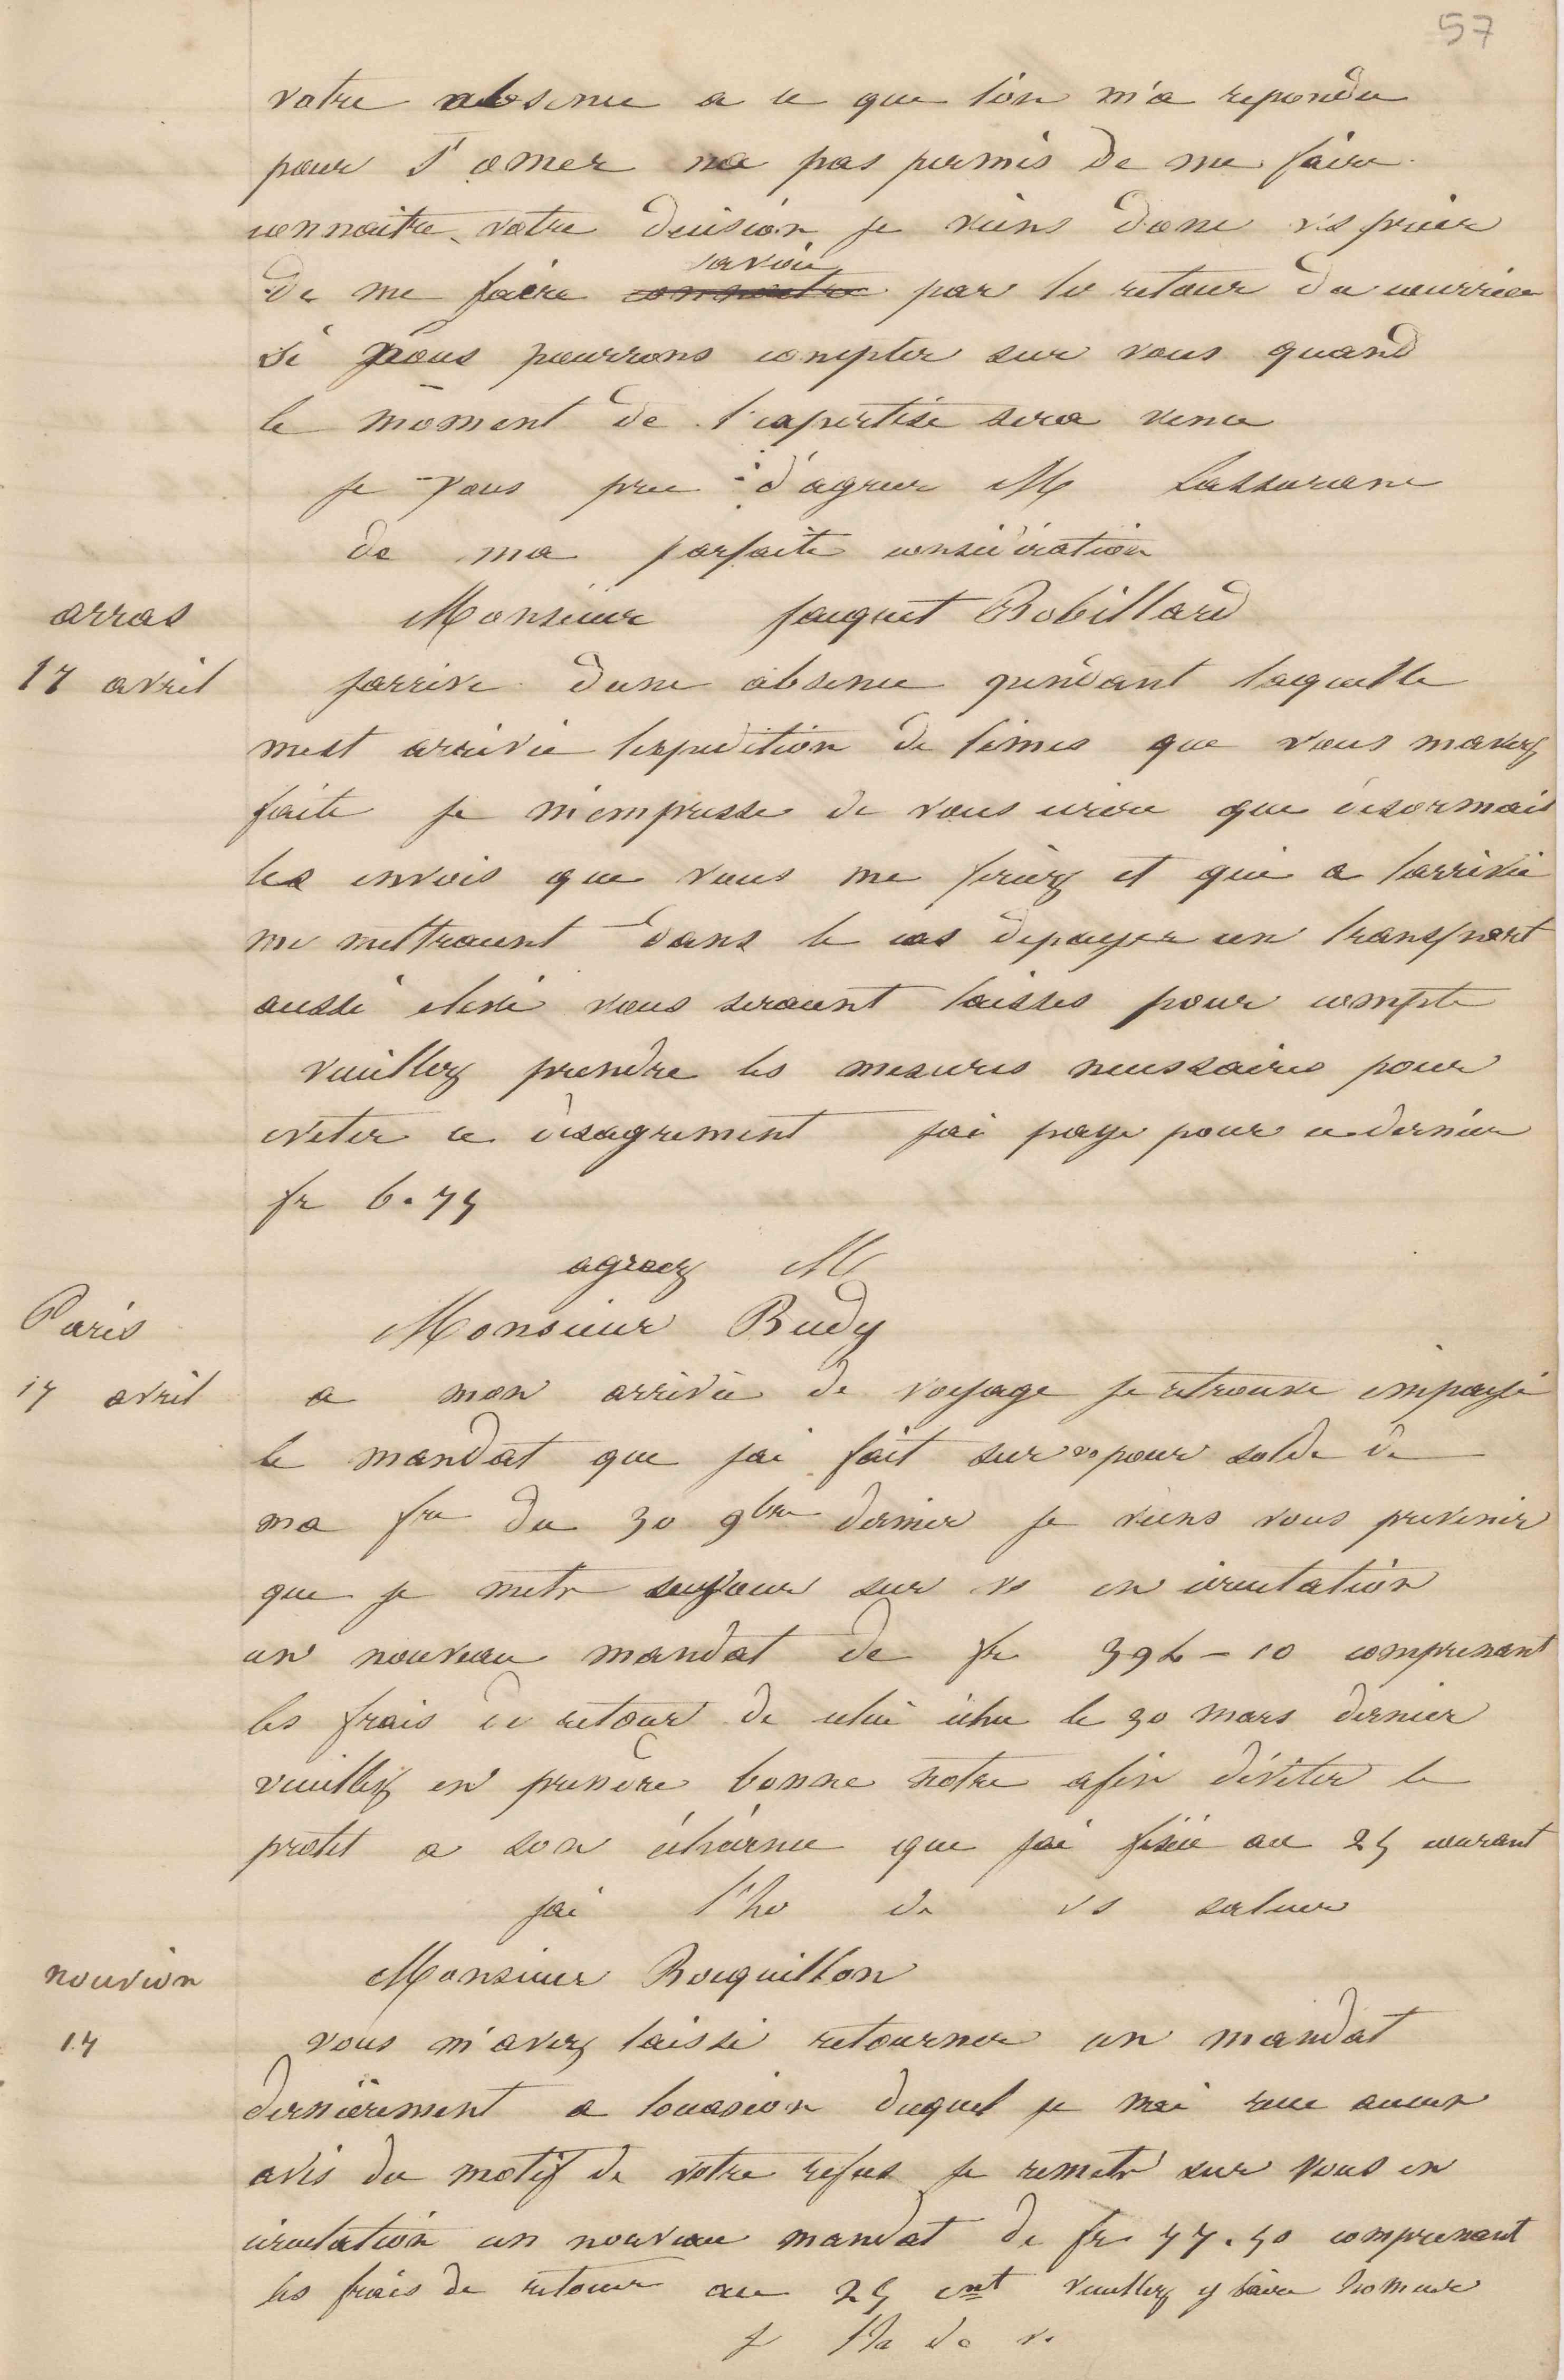 57
votre absence a ce que l'on m'a repondu
pour St omer na pas permis de me faire
connaitre votre decision je viens donc vs prier
de me faire connaitre savoir par le retour du courrier
si nous pourrons compter sur vous quand
le moment de l'expertise sera venu
je vous prie d'agreer M Lassurance
de ma parfaite consideration
arras
Monsieur fauquet Robillard
17 avril
jarrive dune absence pendant laquelle
mest arrivée lexpedition de limes que vous mavez
faite je m'empresse de vous ecrire que desormais
les envois que vous me feriez et qui a larrivée
me mettraient dans le cas de payer un transport
aussi elevé vous seraient laisses pour compte
veuillez prendre les mesures necessaires pour
eviter ce desagrement jai paye pour ce dernier
fr 6.75
agreez M
Paris
Monsieur Budy
17 avril
a mon arrivée de voyage je retrouve impayé
le mandat que jai fait sur vs pour solde de
ma fre du 30 9bre dernier je viens vous prevenir
que je mets sur vs en circulation
un nouveau mandat de fr 396-10 comprenant
les frais de retour de celui échu le 30 mars dernier
veuillez en prendre bonne notre afin d'éviter le
protet a son échéance que jai fixée au 25 courant
jai l'ho de vs saluer
nouvion
Monsieur Bouquillon
17
vous m'avez laissé retourner un mandat
dernièrement a loccasion duquel je nai recu aucun
avis du motif de votre refus je remets sur vous en
circulation un nouveau mandat de fr 77.50 comprenant
les frais de retour au 25 cnt veuillez y faire honneur
j lha de v.